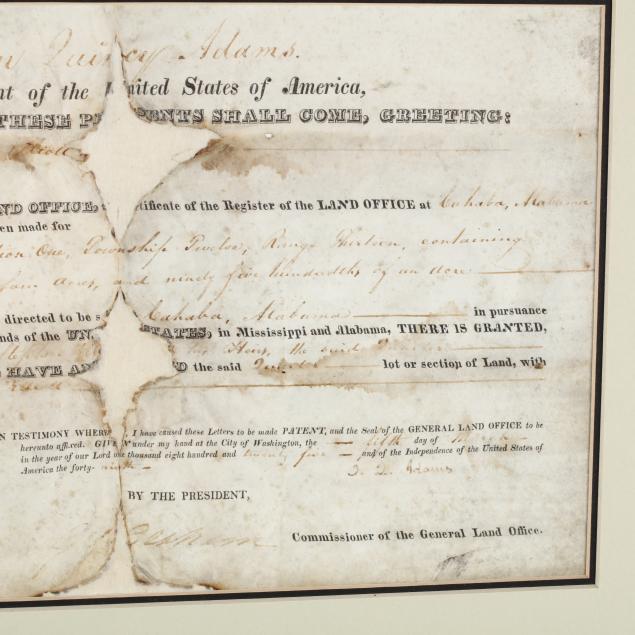 Quincy Adams.
nt of the United States of America,
THESE PRESENTS SHALL COME, GREETING:
ND OFFICE, rtificate of the Register of the LAND OFFICE at Cahaba, Alabama
en made for
tion One, Township Twelve, Range Thirteen, containing
four acres, and ninety five hundredths of an acre
directed to be s Cahaba, Alabama in pursuance
nds of the UN TATES, in Mississippi and Alabama, THERE IS GRANTED,
Heirs, the said
HAVE AN D the said lot or section of Land, with
N TESTIMONY WHERE , I have caused these Letters to be made PATENT, and the Seal of the GENERAL LAND OFFICE to be
hereunto affixed. GIVEN under my hand at the City of Washington, the fifth day of
in the year of our Lord one thousand eight hundred and twenty five and of the Independence of the United States of
America the forty-ninth J. Q. Adams
BY THE PRESIDENT,
Commissioner of the General Land Office.